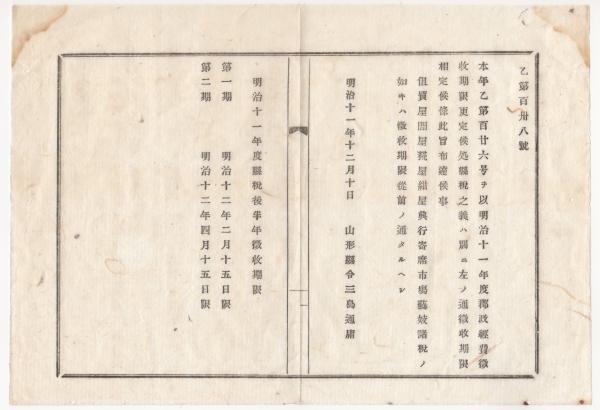 乙第百卅八號
本年乙第百廿六号ヲ以明治十一年度郡政經費徵
收期限更定候処縣稅之義ハ別ニ左ノ通徵收期限
相定候條此旨布達候事
但賣屋問屋糀屋紺屋興行寄席市場藝妓諸稅ノ
如キハ徵收期限從前ノ通タルヘシ
明治十一年十二月十日　山形縣令三島通庸
明治十一年度縣稅後半年徵收期限
第一期　明治十二年二月十五日限
第二期　明治十二年四月十五日限